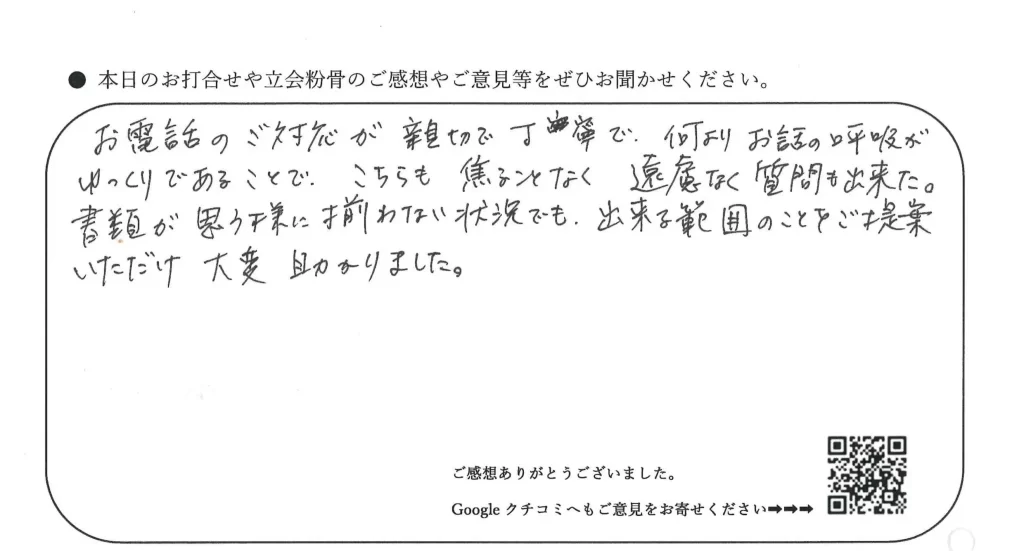 ● 本日のお打合せや立会粉骨のご感想やご意見等をぜひお聞かせください。
お電話のご対応が 親切で丁寧で、何よりお話の呼吸が
ゆっくりであることで、こちらも 焦ることなく 遠慮なく質問も出来た。
書類が思う様に揃わない状況でも、出来る範囲のことをご提案
いただけ 大変 助かりました。
ご感想ありがとうございました。
Google クチコミへもご意見をお寄せください➡➡➡